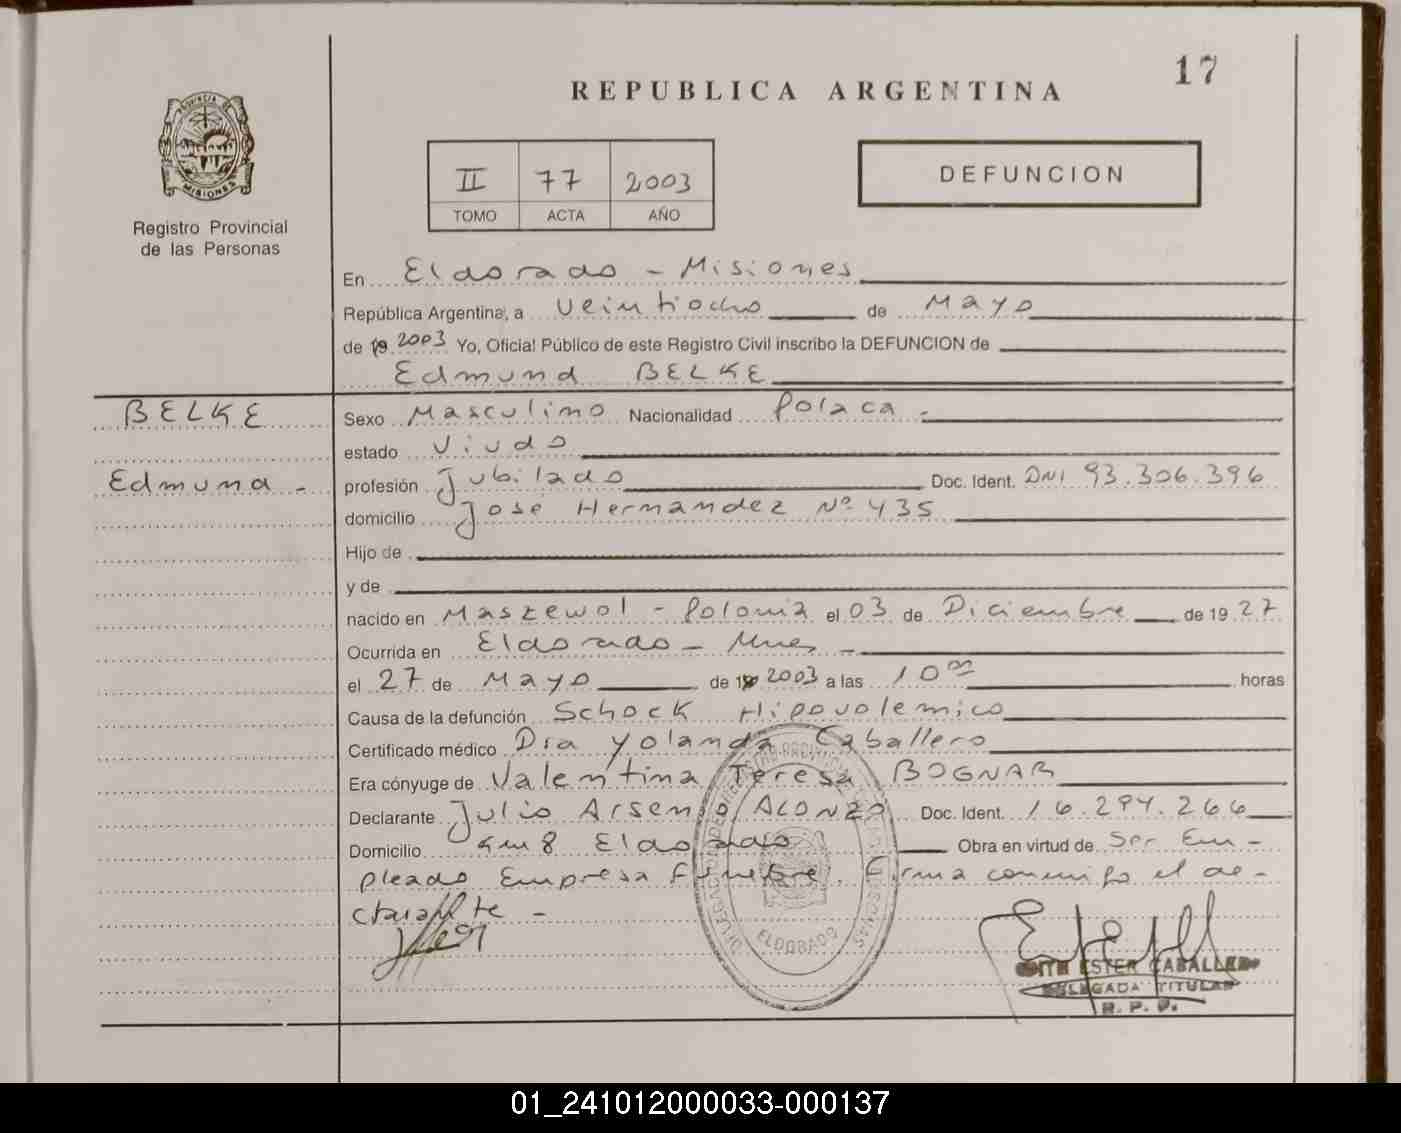 17
REPUBLICA ARGENTINA
PROVINCIA DE
MISIONES
Registro Provincial
de las Personas
II 77 2003
TOMO ACTA AÑO
DEFUNCION
En Eldorado - Misiones
República Argentina, a Veintiocho de Mayo
de 19 2003 Yo, Oficial Público de este Registro Civil inscribo la DEFUNCION de
Edmund BELKE
BELKE
Edmund -
Sexo Masculino Nacionalidad Polaca -
estado Viudo
profesión Jubilado Doc. Ident. DNI 93.306.396
domicilio José Hernandez Nº 435
Hijo de
y de
nacido en Maszewol - Polonia el 03 de Diciembre de 1927
Ocurrida en Eldorado - Mnes -
el 27 de Mayo de 19 2003 a las 10 00 horas
Causa de la defunción Schock Hipovolemico
Certificado médico Dra Yolanda Caballero
Era cónyuge de Valentina Teresa BOGNAR
Declarante Julio Arsenio ALONZO Doc. Ident. 16.294.266
Domicilio Km 8 Eldorado Obra en virtud de Ser Em-
pleado Empresa Funebre. Firma conmigo el de-
clarante -
ELDORADO
EDITH ESTER CABALLERO
DELEGADA TITULAR
R. P. P.
01_241012000033-000137